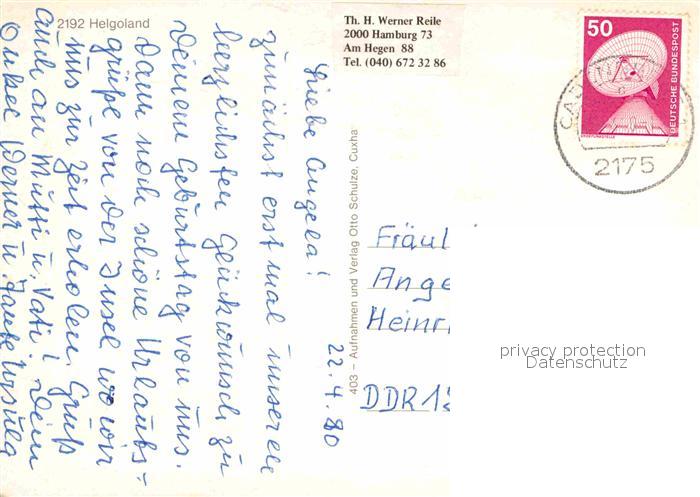 2192 Helgoland
Th. H. Werner Reile
2000 Hamburg 73
Am Hegen 88
Tel. (040) 672 32 86
50
DEUTSCHE BUNDESPOST
2175
22.4.80
Liebe Angela!
zunächst erst mal unseren
herzlichsten Glückwunsch zu
Deinem Geburtstag von uns.
Dann noch schöne Urlaubs-
grüße von der Insel wo wir
uns zur Zeit erholen. Gruß
auch an Mutti u. Vati! Dein
Onkel Werner u. Tante Ursula
403 – Aufnahmen und Verlag Otto Schulze, Cuxha
Fräul
Ange
Heinr
DDR 1
privacy protection
Datenschutz